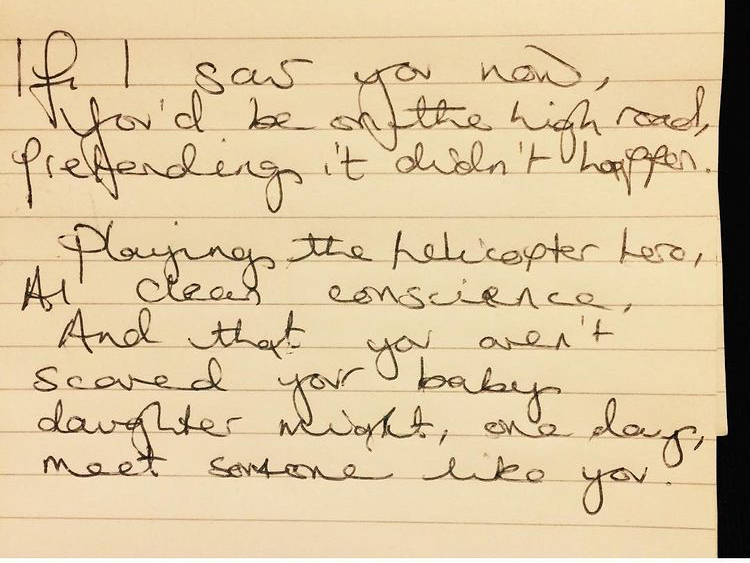 If I saw you now,
You'd be on the high road,
Pretending it didn't happen.
Playing the helicopter hero,
A1 clear conscience,
And that you aren't
scared your baby
daughter might, one day,
meet someone like you.